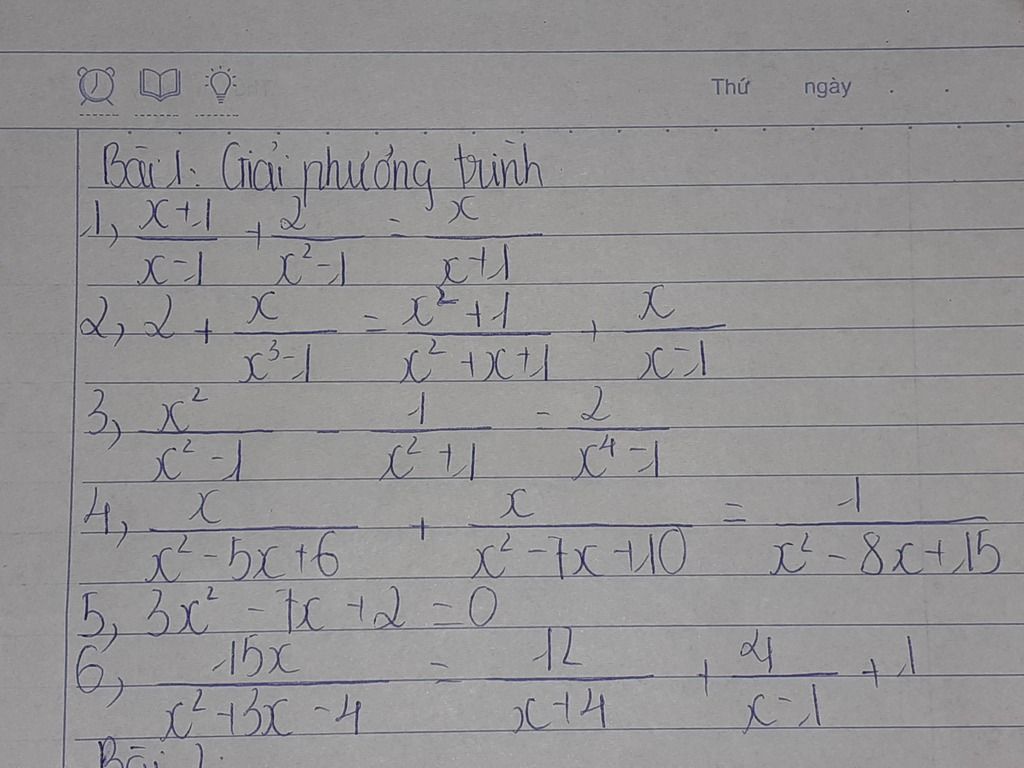 Thứ ngày
Bài 1: Giải phương trình
1, \frac{x+1}{x-1} + \frac{2}{x^2-1} = \frac{x}{x+1}
2, 2 + \frac{x}{x^3-1} = \frac{x^2+1}{x^2+x+1} + \frac{x}{x-1}
3, \frac{x^2}{x^2-1} - \frac{1}{x^2+1} = \frac{2}{x^4-1}
4, \frac{x}{x^2-5x+6} + \frac{x}{x^2-7x+10} = \frac{1}{x^2-8x+15}
5, 3x^2 - 7x + 2 = 0
6, \frac{15x}{x^2+3x-4} = \frac{12}{x+4} + \frac{4}{x-1} + 1
Bài